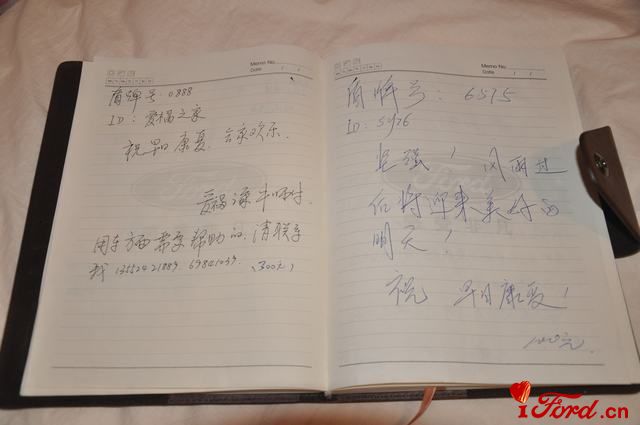 Memo No.
Date / /
盾牌号:0888
ID:爱福之家
祝早日康复 合家欢乐.
爱福潆半日村.
用车方面需要帮助的,请联系
我 13552421889. 69841039. (300元)
Memo No.
Date / /
盾牌号:6575
ID:sy26
坚强! 风雨过
后将迎来美好的
明天!
祝 早日康复!
Ford
iFord.cn